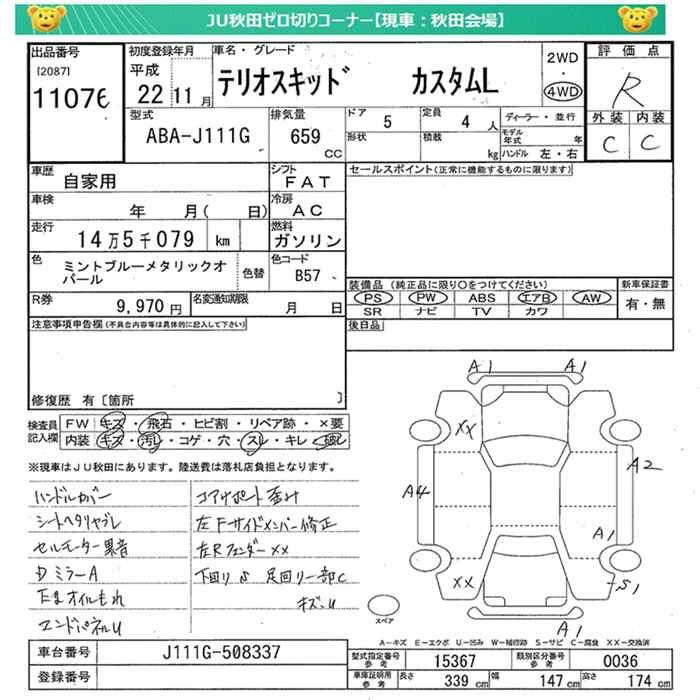 JU秋田ゼロ切りコーナー【現車：秋田会場】
出品番号 [2087] 11076
初度登録年月 平成 22 11月
車名・グレード テリオスキッド カスタムL
2WD・4WD
評価点 R
外装 C 内装 C
型式 ABA-J111G
排気量 659 CC
ドア 5 定員 4 人
形状 積載 kg
ディーラー・並行
モデル年式 年
ハンドル 左・右
車歴 自家用
シフト FAT
車検 年 月( 日)
冷房 AC
走行 14万5千079 km
燃料 ガソリン
色 ミントブルーメタリックオパール 色替
色コード B57
R券 9,970円
名変通知期限 月 日
セールスポイント(正常に機能するものに限ります)
装備品 (純正品に限り○をつけてください)
PS PW ABS エアB AW
SR ナビ TV カワ
新車保証書 有・無
後日品
注意事項申告欄(不具合内容等は具体的に記入して下さい)
修復歴 有〔箇所 〕
検査員記入欄
FW キズ・飛石・ヒビ割・リペア跡・×要
内装 キズ・汚れ・コゲ・穴・スレ・キレ・破れ
※現車はJU秋田にあります。陸送費は落札店負担となります。
ハンドルカバー
シートヘタリヤブレ
セルモーター異音
DミラーA
Eまオイルもれ
エンドパネルU
コアサポート歪み
左Fサイドメンバー修正
左Rフェンダー××
下回りS 足回り一部C
キズ・U
A1 A1
XX
A2
A4
A1
XX
S1
A1
スペア
A－キズ E－エクボ U－凹み W－補修跡 S－サビ C－腐食 XX－交換済
車台番号 J111G-508337
登録番号
型式指定番号 参考 15367
類別区分番号 参考 0036
車庫証明用 参考 長さ 339 cm 幅 147 cm 高さ 174 cm